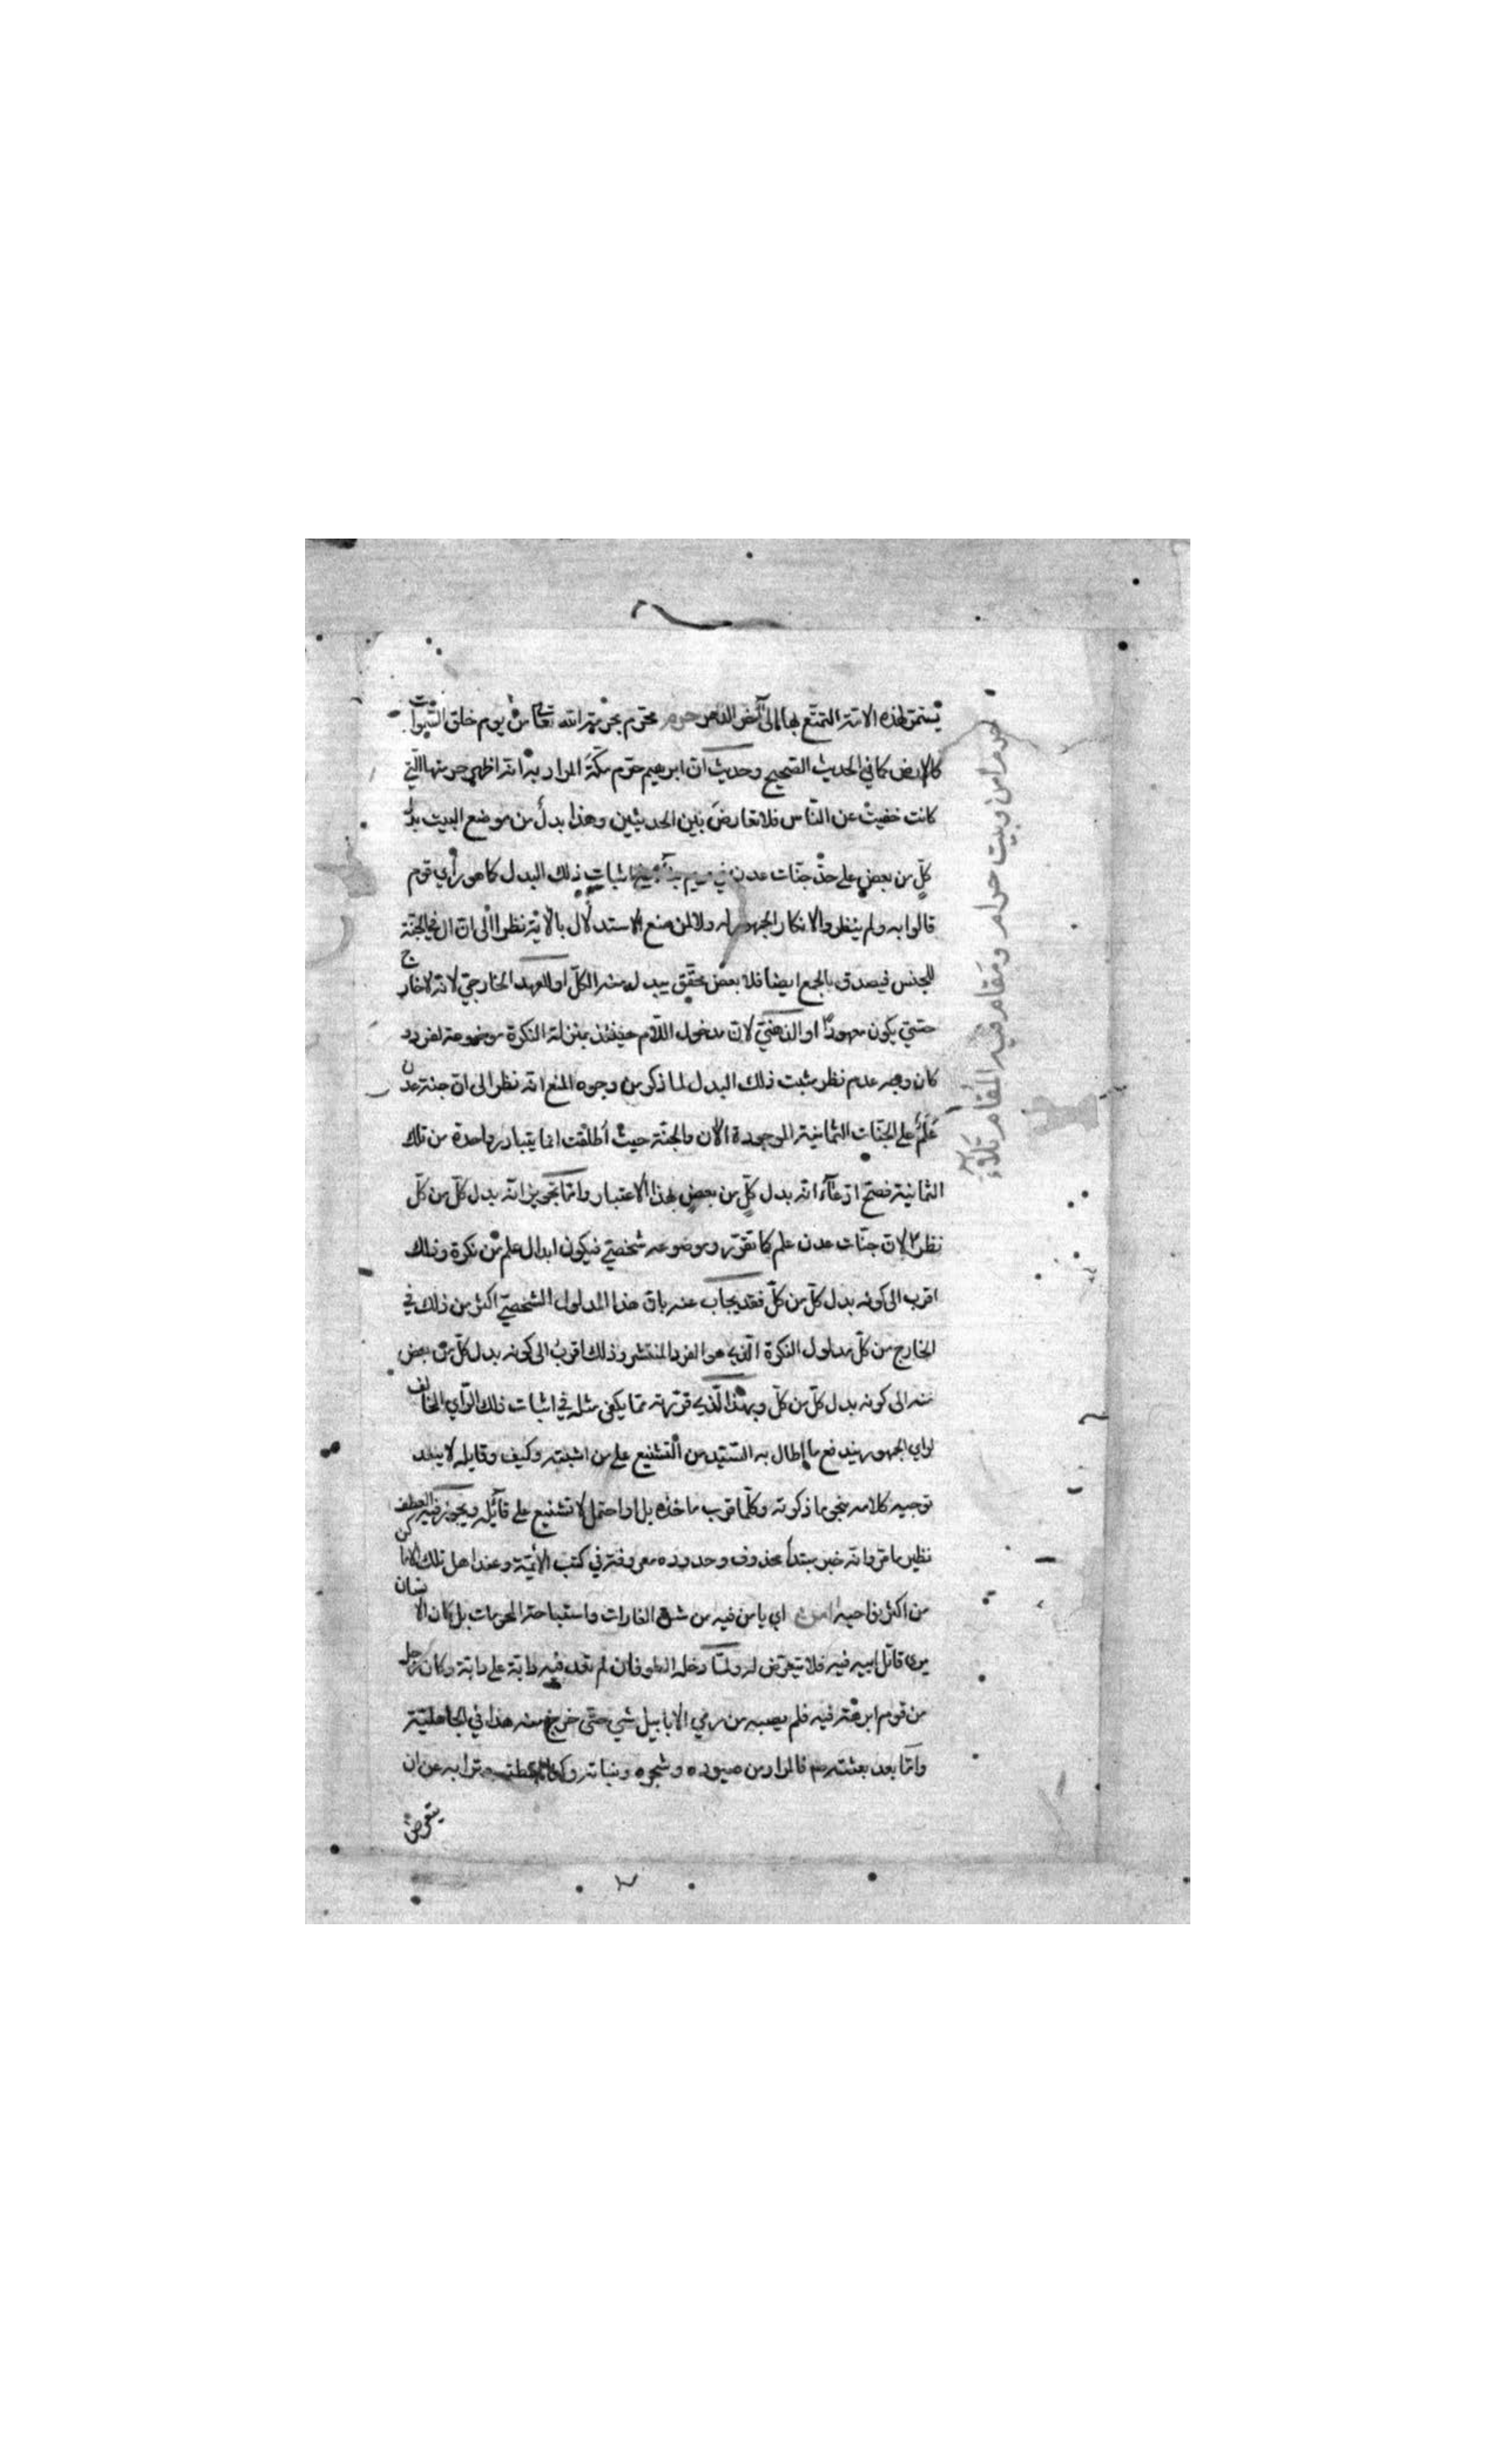 يستمر لهذه الامة التمتع بها الى آخر الدهر حرم محترم بحرمة الله تعالى من يوم خلق السموات
كالارض كما في الحديث الصحيح وحديث ان ابرهيم حرّم مكّة المراد به انه اظهر حرمتها التي
كانت خفيت عن النّاس فلا تعارض بين الحديثين وهذا بدل من موضع البيت بدل
كلّ من بعض على حدّ جنّات عدن في مريم باثبات ذلك البدل كما هو رأي قوم
قالوا به ولم ينظروا لانكار الجمهور له ولا لمن منع الاستدلال بالآية نظرا الى ان ال في الجنّة
للجنس فيصدق بالجمع ايضا فلا بعض محقّق يبدل منه الكلّ او للعهد الخارجي لانه لا خارج
حتى يكون معهودًا او الذهني لان مدخول اللام حينئذ بمنزلة النكرة موضوعة لفرد و
كان وجه عدم نظر مثبت ذلك البدل لما ذكر من وجوه المنع انه نظر الى ان جنة عدن
عَلَمٌ على الجنّات الثمانية الموجودة الآن والجنّة حيث أطلقت انما يتبادر واحدة من تلك
الثمانية فصحّ ادّعاء انه بدل كلّ من بعض بهذا الاعتبار وامّا تجويز انّه بدل كلّ من كلّ
نظرا لان جنّات عدن علم كما تقرّر وموضوعه شخصيّ فيكون ابدال علم من نكرة وذلك
اقرب الى كونه بدل كلّ من كلّ فقد يجاب عنه بان هذا المدلول الشخصيّ اكثر من ذلك في
الخارج من كلّ مدلول النكرة الّذي هو الفرد المنتشر وذلك اقرب الى كونه بدل كلّ من بعض
منه الى كونه بدل كلّ من كلّ وبهذا الّذي قرّرته ممّا يكفي مثله في اثبات ذلك الرّأي المخالف
لراي الجمهور يندفع ما اطال به السّيّد من التّشنيع على من اثبته وكيف وقايله لا يبعد
توجيه كلامه بنحو ما ذكرته وكلّما قرب ماخذه بل او احتمل لا تشنيع على قائله ويجوز فيه العطف
نظير ما مرّ وانه خبر مبتدأ محذوف وحدوده معروفة في كتب الأئمّة وعند اهل تلك الاماكن
من اكثر نواحيه امن اي يامن فيه من شنّ الغارات واستباحة الحرمات بل كان الانسان
يرى قاتل ابيه فيه فلا يتعرّض له ولمّا دخله الطوفان لم تعد فيه دابّة على دابّة وكان رجل
من قوم ابرهة فيه فلم يصبه من رمي الابابيل شي حتّى خرج منه هذا في الجاهليّة
وامّا بعد بعثته صلم فالمراد من صيوده وشجره ونباته ترابه من ان
يتعرض
حرم امن وبيت حرام ومقام فيه المُقام تلاَءُ